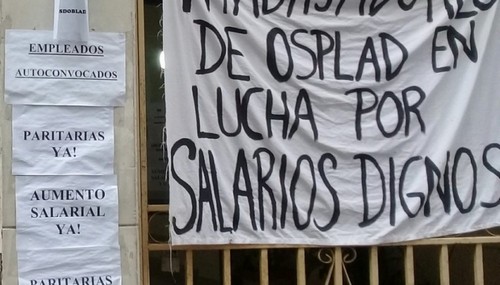 EMPLEADOS
AUTOCONVOCADOS
PARITARIAS
YA!
AUMENTO
SALARIAL
YA!
PARITARIAS
TRABAJADORES
DE OSPLAD EN
LUCHA POR
SALARIOS DIGNOS